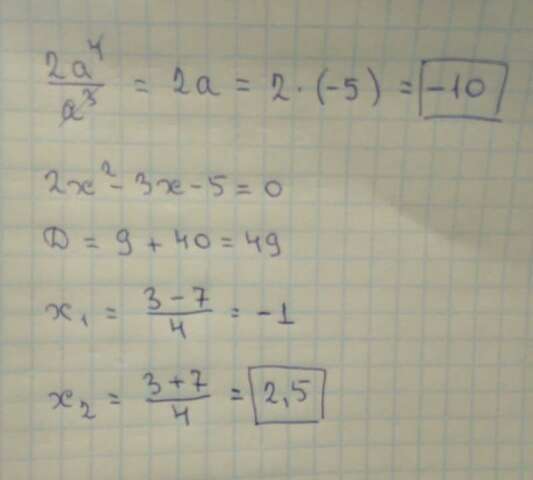 2a⁴/a³ = 2a = 2 · (-5) = -10
2x² - 3x - 5 = 0
D = 9 + 40 = 49
x₁ = (3 - 7)/4 = -1
x₂ = (3 + 7)/4 = 2,5